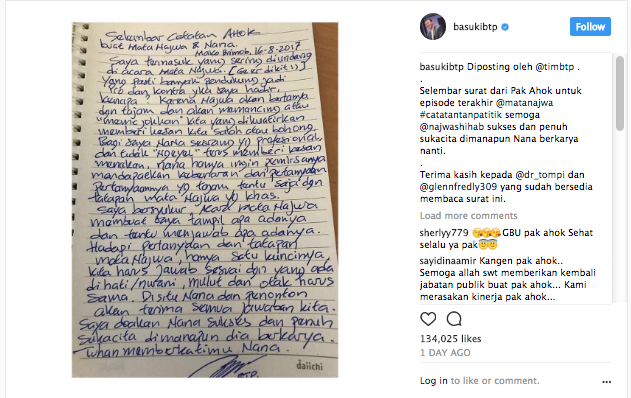 Selembar Catatan Ahok
buat Mata Najwa & Nana.
Mako Brimob, 16-8-2017
Saya termasuk yang sering diundang
di acara Mata Najwa. [Ge er dikit :)]
Yang pasti banyak pendukung jadi
pro dan kontra jika saya hadir,
kenapa? Karena Najwa akan bertanya
dgn tajam dan akan memancing atau
kita yang dikuatirkan
memberi kesan kita salah atau bohong.
Bagi saya Nana seorang yg profesional
dan tidak "ngeyel" terus memberi kesan
menekan, Nana hanya ingin pemirsanya
mendapatkan kebenaran dari pertanyaan
Pertanyaannya yg tajam, tentu saja dgn
tatapan mata Najwa yg khas.
Saya bersyukur, acara Mata Najwa
membuat saya tampil apa adanya
dan tentu menjawab apa adanya.
Hadapi pertanyaan dan tatapan
mata Najwa, hanya satu kuncinya,
kita harus jawab sesuai dgn yang ada
di hati/nurani, mulut dan otak harus
sama. Disitu Nana dan penonton
akan terima semua jawaban kita.
Saya doakan Nana sukses dan penuh
sukacita dimanapun dia berkarya.
Tuhan memberkatimu Nana.
BTP.
daiichi
basukibtp
Follow
basukibtp Diposting oleh @timbtp .
.
Selembar surat dari Pak Ahok untuk
episode terakhir @matanajwa
#catatantanpatitik semoga
@najwashihab sukses dan penuh
sukacita dimanapun Nana berkarya
nanti.
.
Terima kasih kepada @dr_tompi dan
@glennfredly309 yang sudah bersedia
membaca surat ini.
Load more comments
sherlyy779 😘😘😘GBU pak ahok Sehat
selalu ya pak😇😇
sayidinaamir Kangen pak ahok..
Semoga allah swt memberikan kembali
jabatan publik buat pak ahok... Kami
merasakan kinerja pak ahok...
134,025 likes
1 DAY AGO
Log in to like or comment.